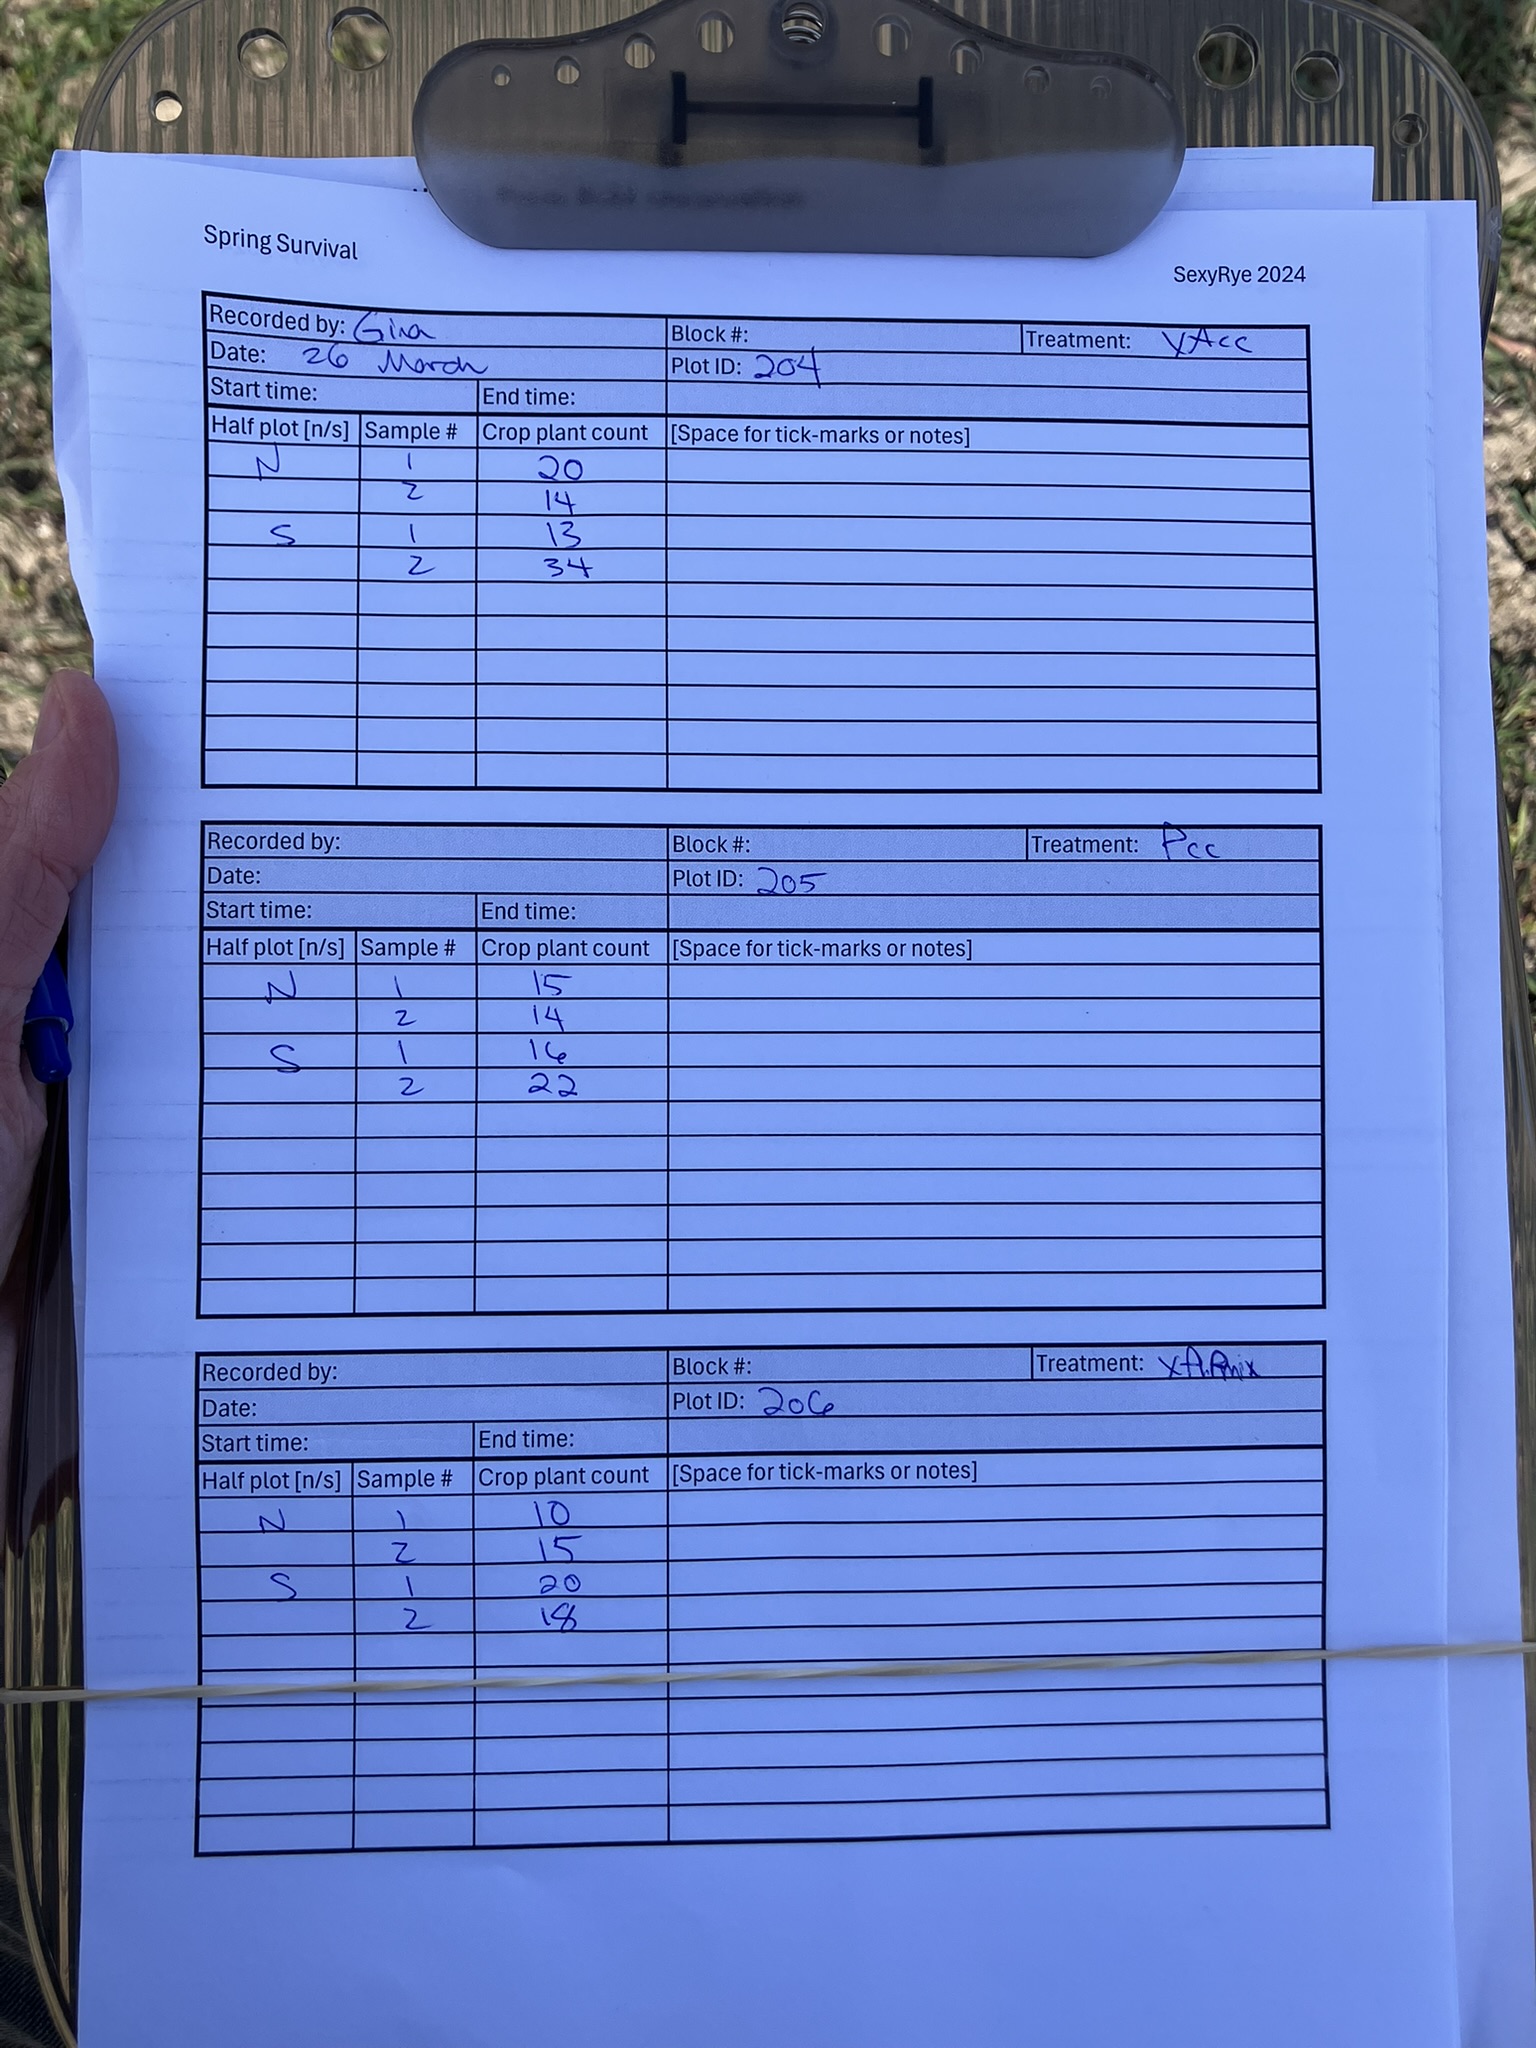 Spring Survival
SexyRye 2024
Recorded by: Gina Block #: Treatment: XAcc
Date: 26 March Plot ID: 204
Start time: End time:
Half plot [n/s] Sample # Crop plant count [Space for tick-marks or notes]
N 1 20
2 14
S 1 13
2 34
Recorded by: Block #: Treatment: Pcc
Date: Plot ID: 205
Start time: End time:
Half plot [n/s] Sample # Crop plant count [Space for tick-marks or notes]
N 1 15
2 14
S 1 16
2 22
Recorded by: Block #: Treatment:
Date: Plot ID: 206
Start time: End time:
Half plot [n/s] Sample # Crop plant count [Space for tick-marks or notes]
N 1 10
2 15
S 1 20
2 18